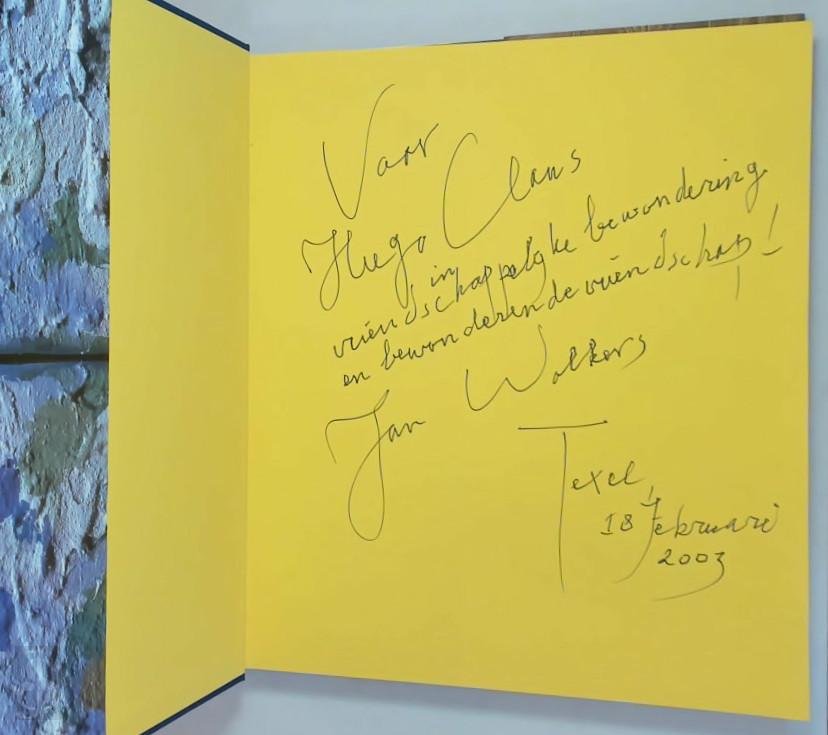 Voor
Hugo Claus
in
vriendschappelijke bewondering
en bewonderende vriendschap!
Jan Wolkers
Texel,
18 februari
2003